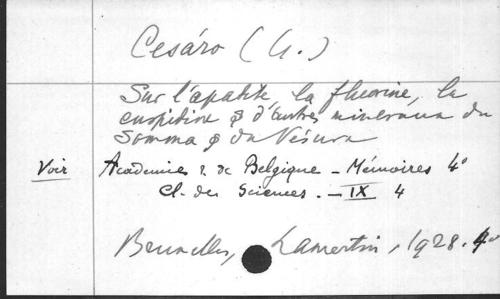 Cesáro (G.)
Sur l'apatite la fluorine, la
cuspidine & d'autres minéraux du
Somma & du Vésuve
Voir Académie r. de Belgique - Mémoires 4°
Cl. des Sciences. - IX 4
Bruxelles, Lamertin, 1928. 4°